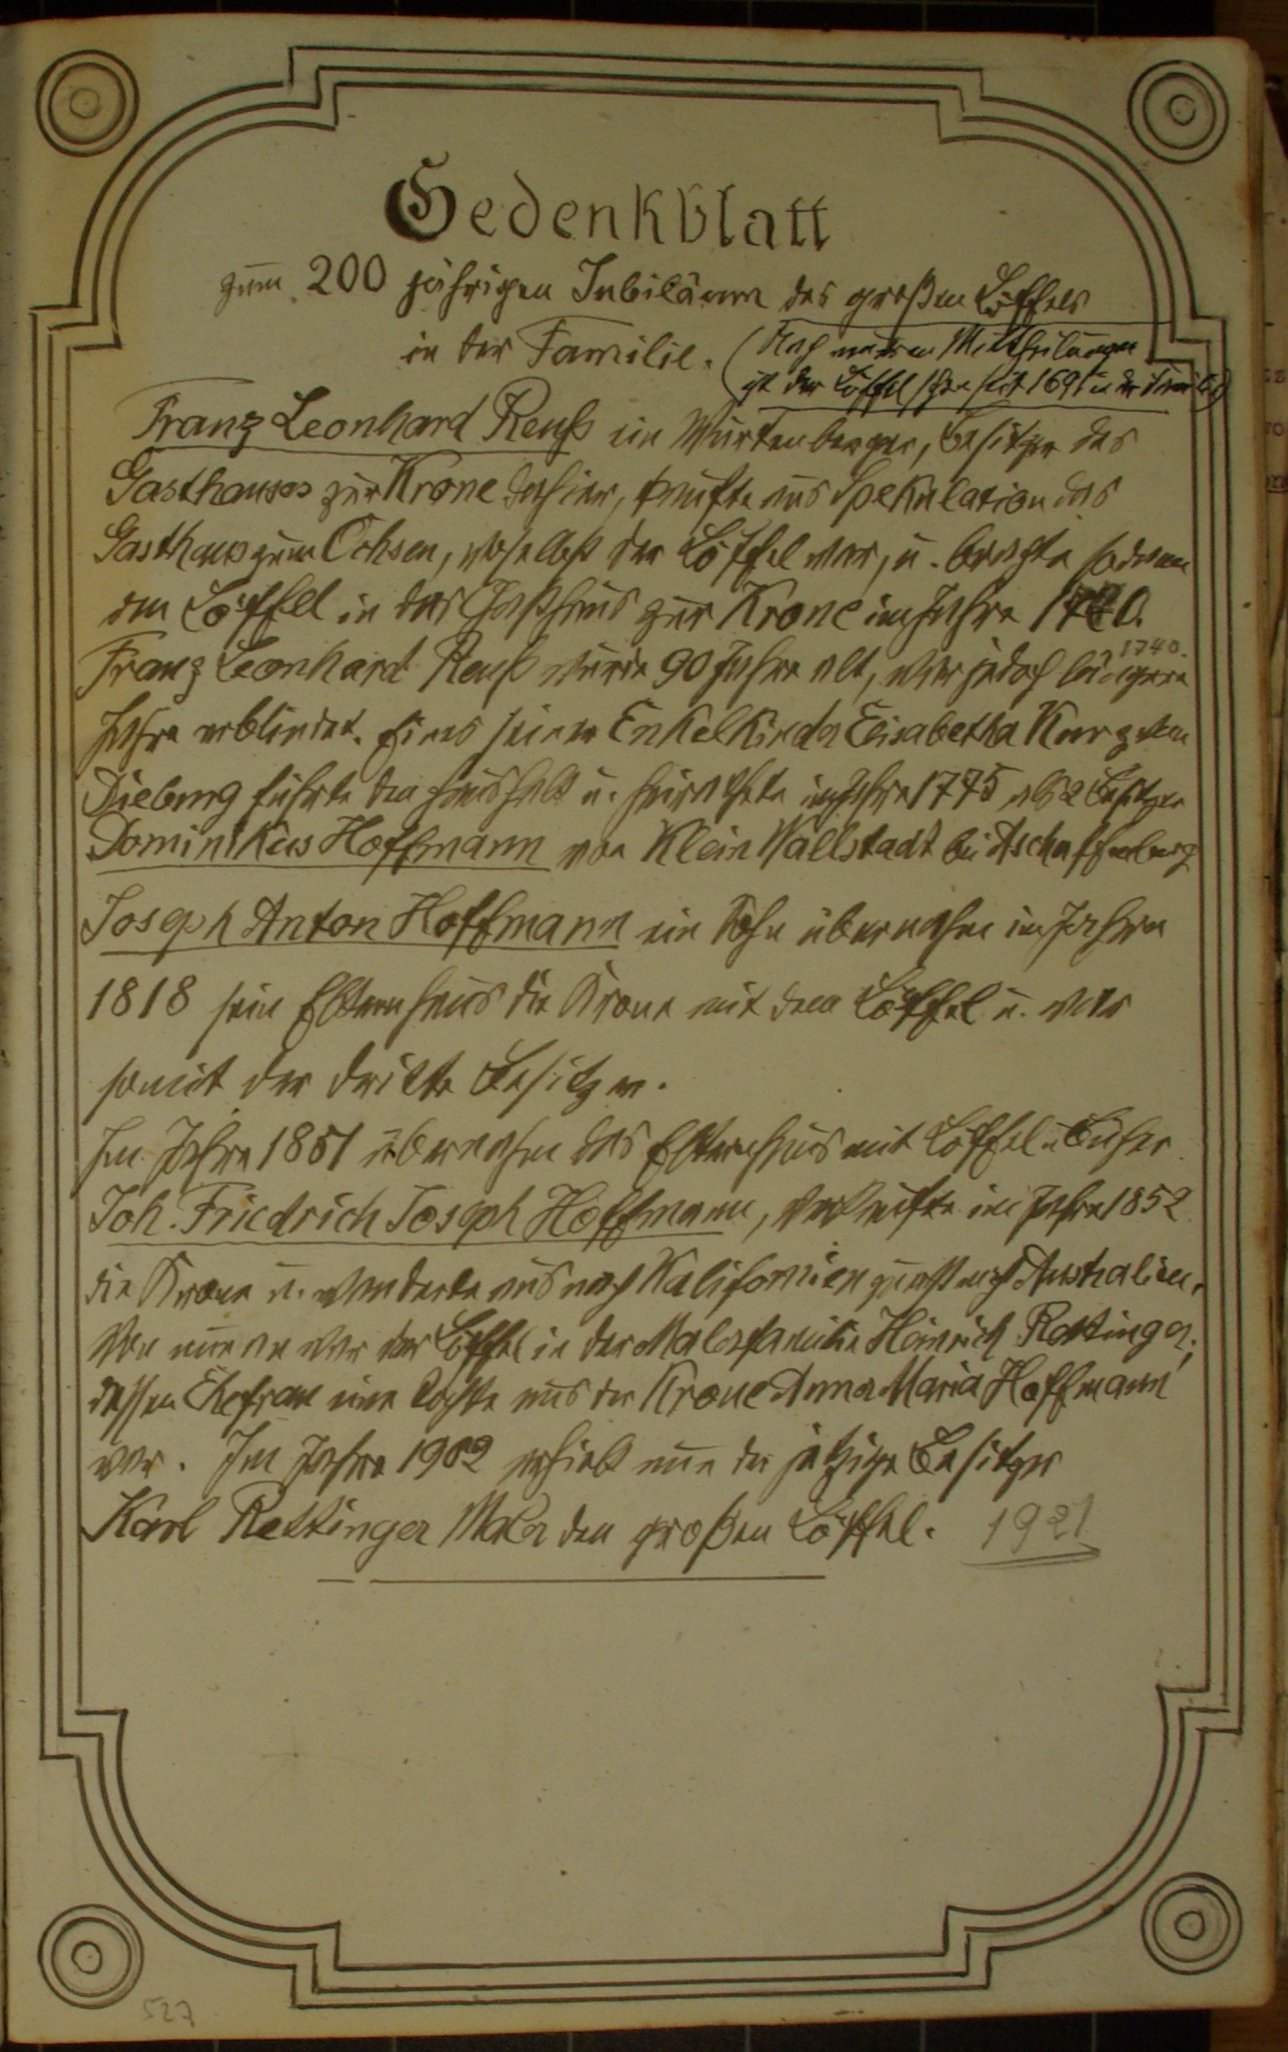 Gedenkblatt
zum 200 jährigen Jubiläum des großen Löffels
in der Familie. (Nach neueren Mittheilungen
ist der Löffel schon seit 1691 in der Familie)
Franz Leonhard Reuß ein Würtenberger, Besitzer des
Gasthauses zur Krone dahier, kaufte aus Spekulation das
Gasthaus zum Ochsen, woselbst der Löffel war, u. brachte sodann
den Löffel in das Gasthaus zur Krone im Jahre 1720.
1740.
Franz Leonhard Reuß wurde 90 Jahre alt, war jedoch längere
Jahre erblindet. Eines seiner Enkelkinder Elisabetha Kurz von
Dieburg führte den Haushalt u. heirathete im Jahre 1775 als 2 Besitzer
Dominikus Hoffmann von Klein Wallstadt bei Aschaffenburg
Joseph Anton Hoffmann ein Sohn übernahm im Jahre
1818 sein Elternhaus die Krone mit dem Löffel u. war
somit der dritte Besitzer.
Im Jahre 1851 übernahm das Elternhaus mit Löffel u Bücher
Joh. Friedrich Joseph Hoffmann, verkaufte im Jahre 1852
die Krone u. wanderte aus nach Kalifornien zuerst nach Australien.
Von nun an war der Löffel in der Malersfamilie Heinrich Rettinger,
dessen Ehefrau eine Tochter aus der Krone Anna Maria Hoffmann
war. Im Jahre 1902 erhielt nun der jetzige Besitzer
Karl Rettinger Maler den großen Löffel. 1921
527